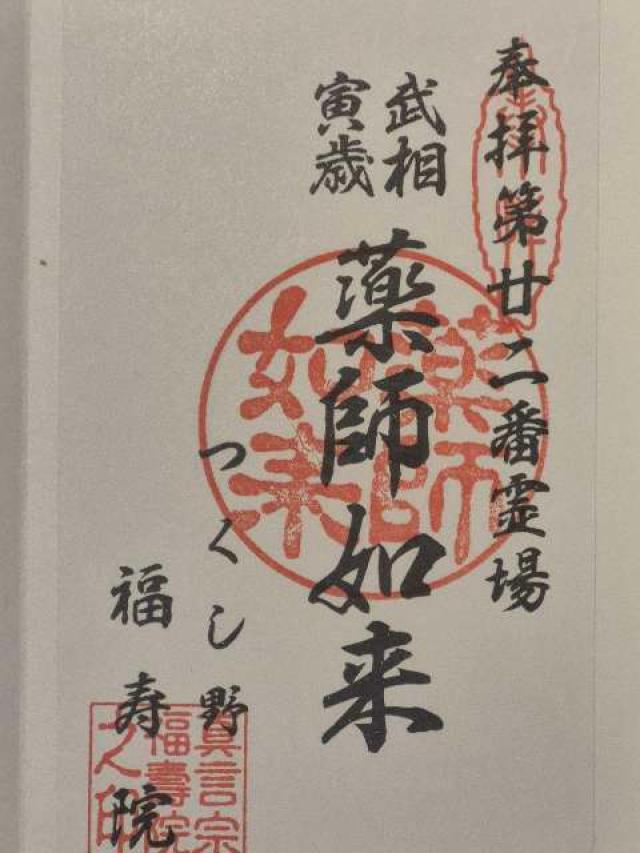 奉拝第廿二番霊場
武相
寅歳
薬師如来
つくし野
福寿院
薬師
如来
真言宗
福壽院